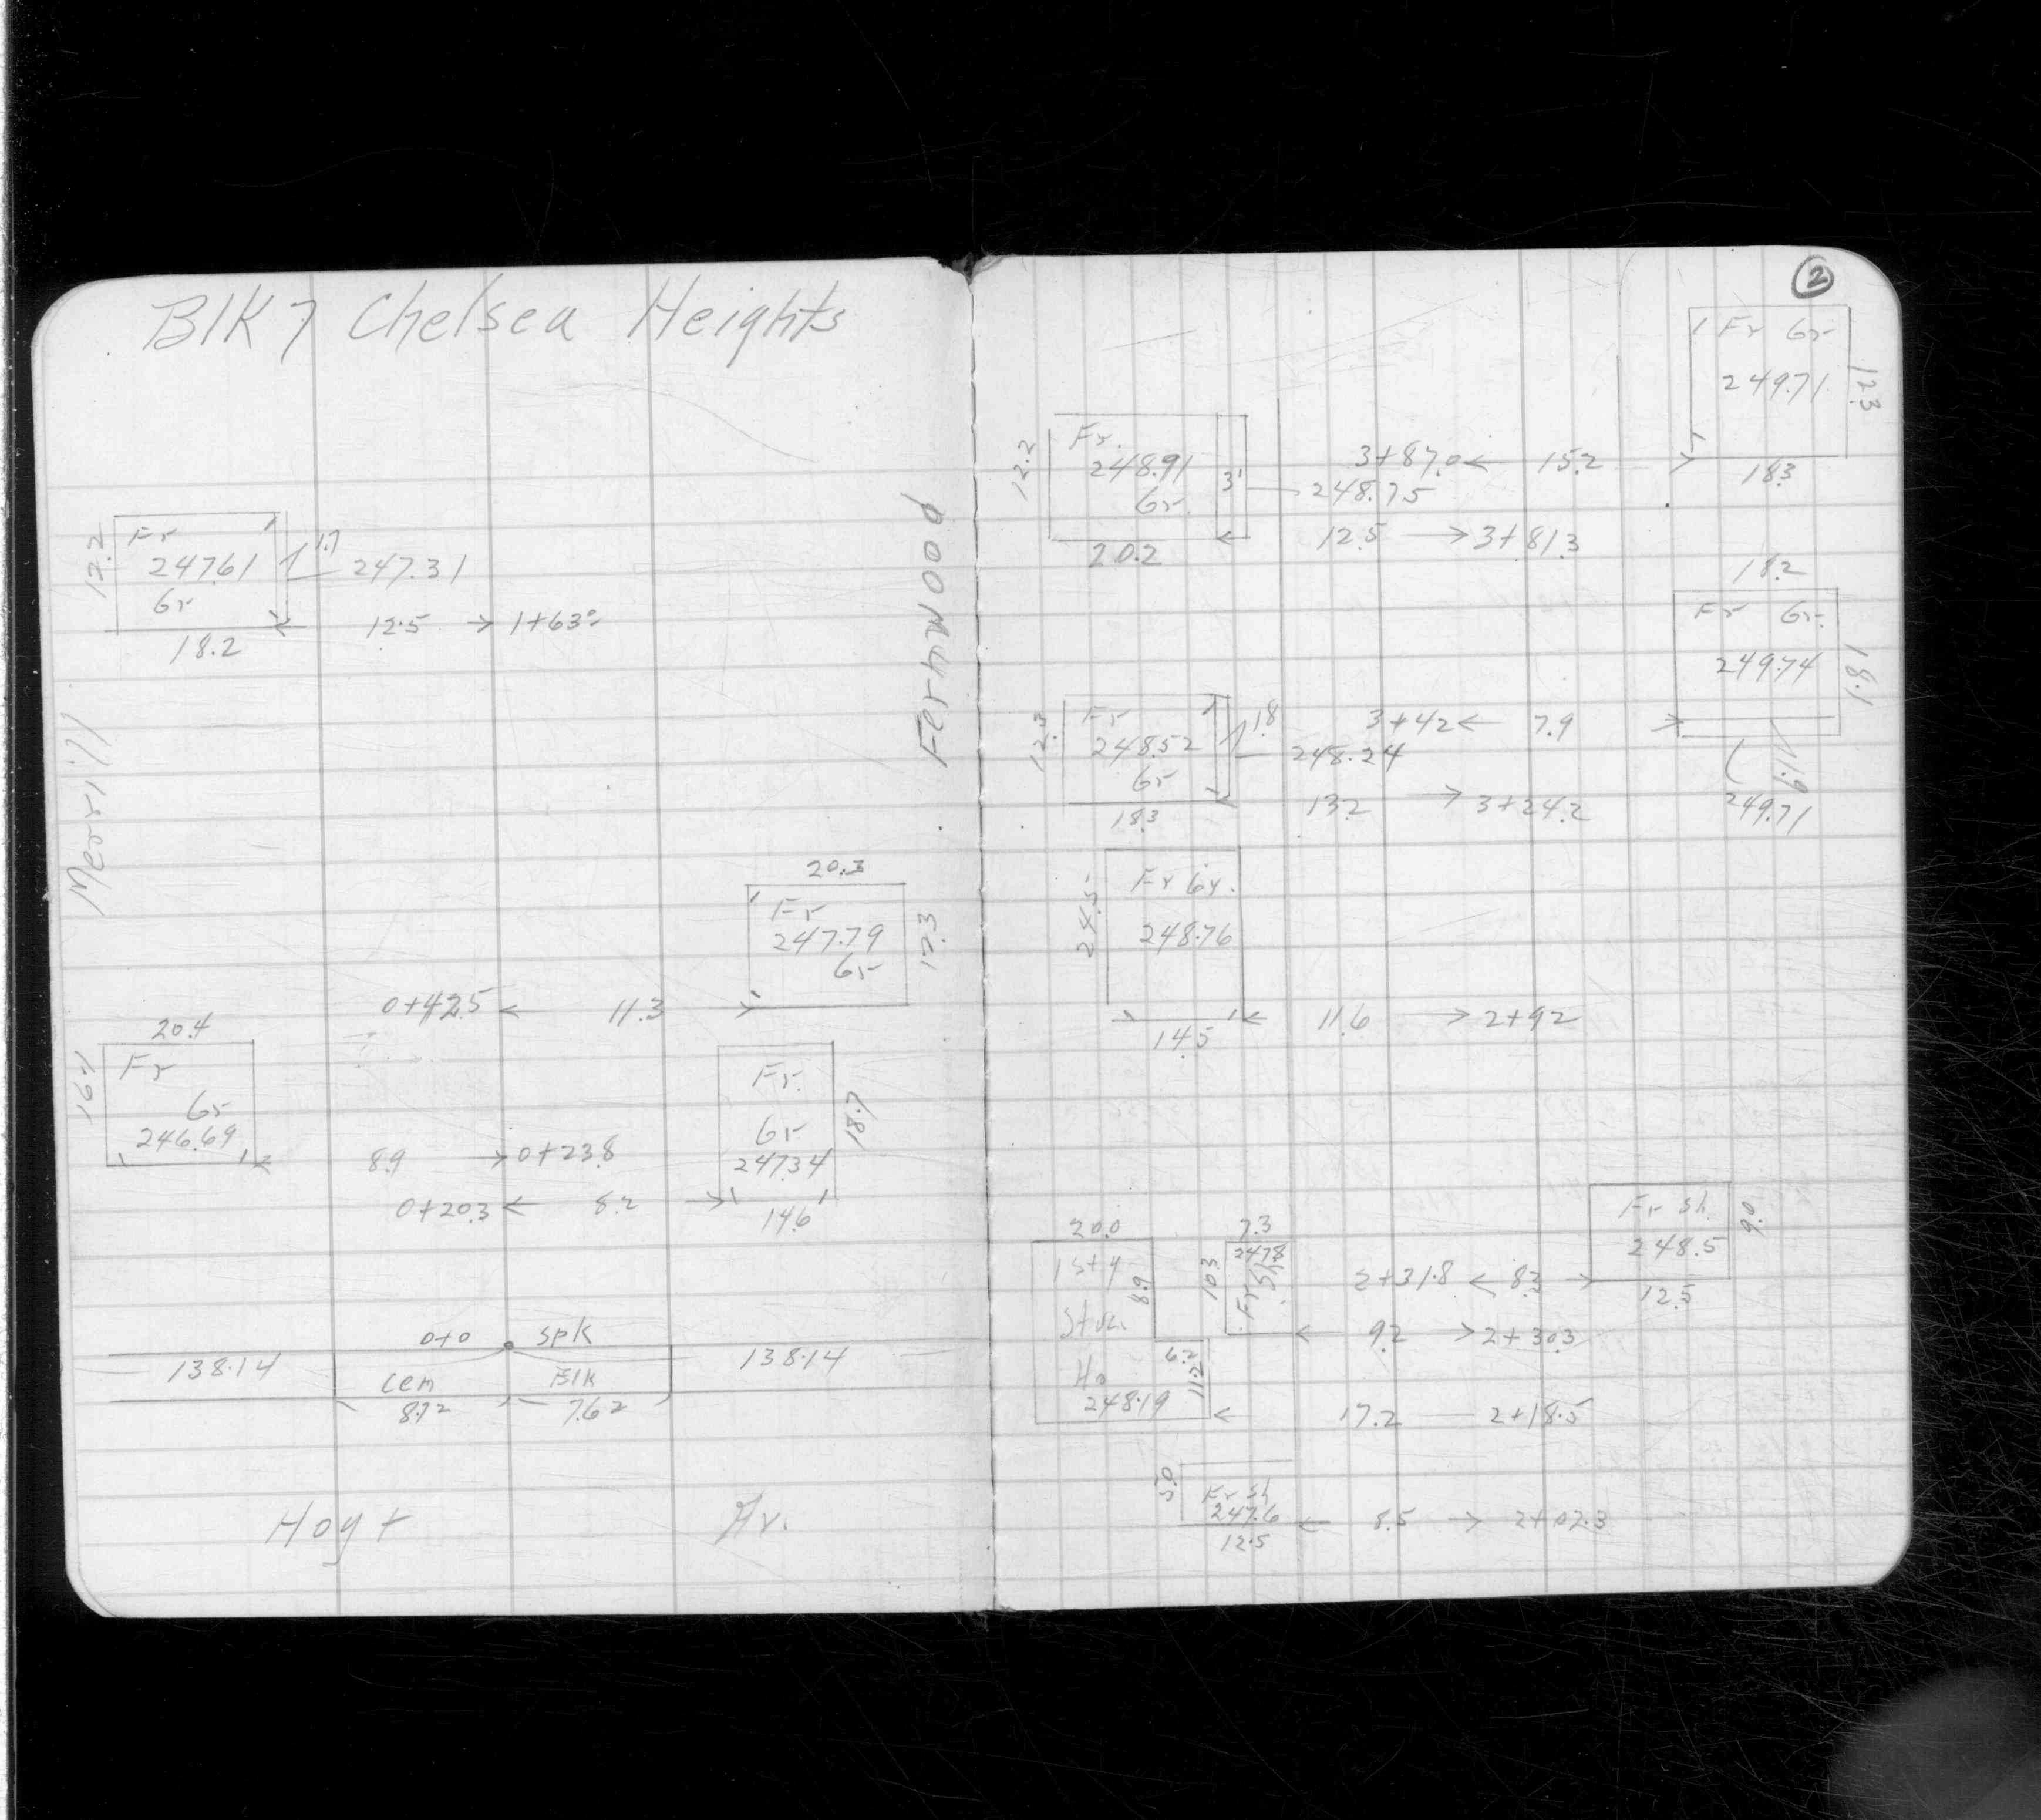 Blk 7 Chelsea Heights
12.2
Fr
247.61
Gr
18.2
1.7
247.31
12.5 → 1+63.0
Merrill
Fernwood
20.3
Fr
247.79
Gr
12.3
0+42.5 ← 11.3
20.4
16.1
Fr
Gr
246.69
8.9 → 0+23.8
Fr.
Gr
247.34
18.7
14.6
0+20.3 ← 8.2
0+0 spk
138.14
138.14
Cen Blk
8.72 7.62
Hoyt Av.
2
Fr Gr
249.71
12.3
18.3
12.2
Fr.
248.91
Gr.
3'
20.2
3+87.0 ← 15.2
248.75
12.5 → 3+81.3
18.2
Fr Gr.
249.74
18.1
11.9
249.71
12.3
Fr
248.52
Gr
18.3
1.8
3+42 ← 7.9
248.24
13.2 → 3+24.2
24.5
Fr Gr.
248.76
14.5
11.6 → 2+92
Fr sh
248.5
9.0
12.5
20.0
1 Sty
Stuc.
Ho
248.19
8.9
6.2
11.2
7.3
10.3
247.8
Fr Sh.
2+31.8 ← 8.3 →
← 9.2 → 2+30.3
← 17.2 — 2+18.5
5.0
Fr sh
247.6
12.5
← 8.5 → 2+02.3